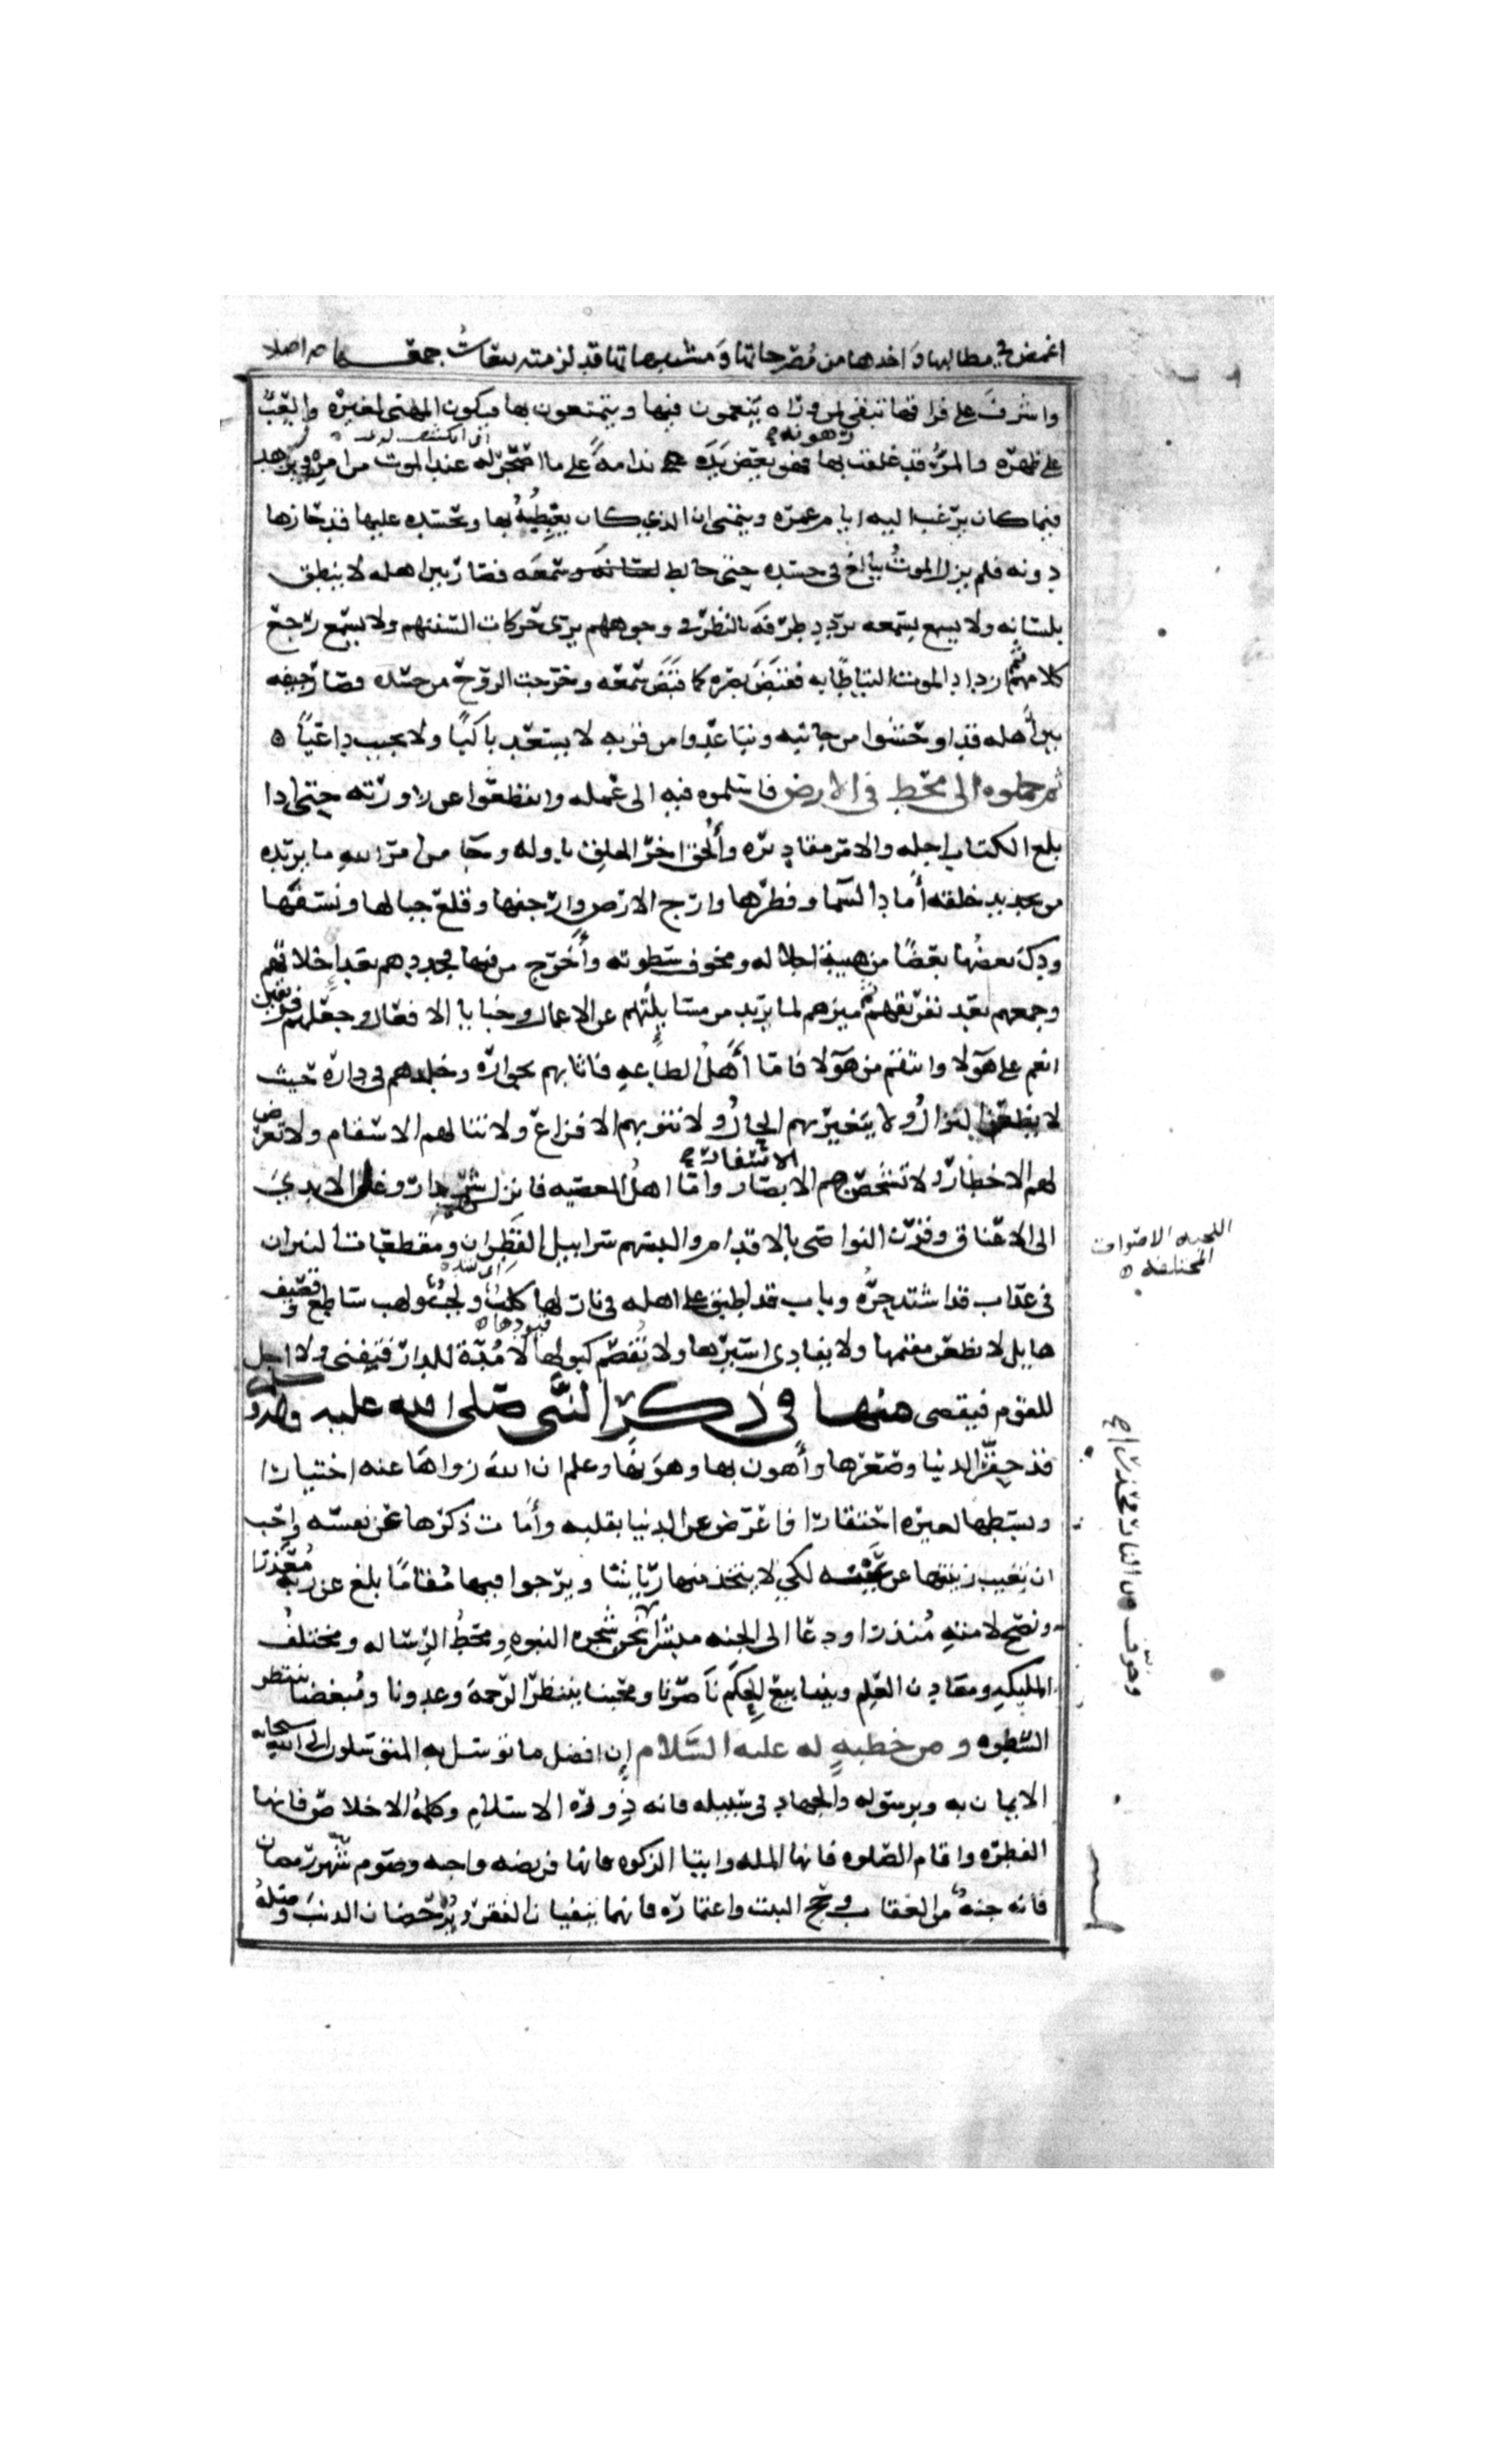 اغمض في مطالبها واخدها من مُصرحاتها وَمشتبهاتها قد لزمته تبعاتُ جمعها صح اصلا
واشرفَ على فراقها تبقى لمن ورآه ينعمون فيها ويتمتعون بها فيكون المهنى لغيره والعِبُ
على ظهره والمرُ قد غلقت رهونه بها فهو يعَض يَدَه ندامهً على ما اصحر له عند الموت من امره ويزهد
فيما كان يرغب اليه ايام عمره ويتمنى ان الذي كان يغبِطهُ بها ويحسده عليها قد حازها
دونه فلم يزل الموتُ يبالغ في جسده حتى خالط لسَانهَ وسَمعَه فصَار بين اهله لا ينطق
بلسَانه ولا يسمع بسَمعه يردد طرفه بالنظر في وجوههم يرى حركات السنتهم ولا يسمع رجع
كلامهم ثم ازداد الموت التياطًا به فقبَضَ بصره كما قبَضَ سَمعَه وخرجت الروح من جسَده فصَار جيفه
بين أهله قد اوحشوا من جانبه وتباعدوا من قربه لا يسعد باكيًا ولا يجيب داعيًا ه
ثم حملوه الى مخط في الارض فاسلموه فيه الى عمله وانقطعوا عن زورته حتى اذا
بلغ الكتاب اجله والامر مقاديره وأُلحق اخر الخلق باوله وجآ من امر الله ما يريده
من تجديد خلقه أماد السَما وفطرها وارج الارض وارجفها وقلع جبالها ونسفها
ودك بعضُها بعضًا من هيبة جلاله ومخوف سَطوته وأَخرج من فيها فجددهم بعد إخلاقهم
وجمعهم بعد تفريقهم ثم ميزهم لما يريد من مسَايلتهم عن الاعمال وخبايا الافعال وجعلهم فريقين
انعم على هَوٓلا وانتقم من هَوٓلا فامّا أَهلُ الطاعهِ فاثابهم بجواره وخلدهم في داره حيث
لا يظعن النزالُ ولا يتغير بهم الحالُ ولا تنوبهم الافزاع ولا تنالهم الاسقام ولا تعرض
لهم الاخطار ولا تشخصهم الاسفار وامّا اهلُ المعصيه فانزلهم شر دار وغل الايدي
الى الاعناق وقرن النواصى بالاقدام والبسهم سرابيل القَطِران ومقطعات النيران
في عذاب قد اشتد حرُّه وباب قد اطبق على اهله في نار لها كَلَبٌ اى شده ولجبٌ ولهب ساطع وقصيف
هايل لا يظعن مقيمها ولا يفادى اسيرها ولا تُفصَم كبولها قيودها لا مُدّة للدار فتفنى ولا اجل
للقوم فيقضى منها في ذكر النبي صلى الله عليه وآله وسلم
قد حقّر الدنيا وصَغرها وأهون بها وهوَنها وعلم ان الله زواها عنه اختيارا
وبسَطها لغيره احتقارا فاعرض عن الدنيا بقلبه وأمات ذكرها عن نفسه واحَب
ان تغيب زينتها عن عينه لكي لا يتخذ منها رياشا ويرجوا فيها مُقامًا بلغ عن ربه مُعذرا
ونصَح لامتهِ مُنذرا ودعا الى الجنه مبشرا نحن شجره النبوهِ ومَحطُ الرسَاله ومختلفُ
المليكهِ ومعادن العِلم وينابيع الحِكَم نَاصرنا ومحبنا ينتظر الرحمة وعدونا ومُبغضنا ينتظر
السَطوه ومن خطبهٍ له عليه السَلام إن افضل ما توسَل به المتوسلون الى الله سبحانه
الايمان به وبرسَوله والجهاد في سَبيله فانه ذِروه الاسلام وكلمهُ الاخلاص فانها
الفطره واقام الصَلوه فانها المله وايتا الزكوه فانها فريضه واجبه وصَوم شهر رمضان
فانه جنهٌ من العقاب وحج البيت واعتماره فانهما ينفيان الفقر ويُرحَضان الذنبَ وصِلهُ
اللجبه الاصوات
المختلفه ه